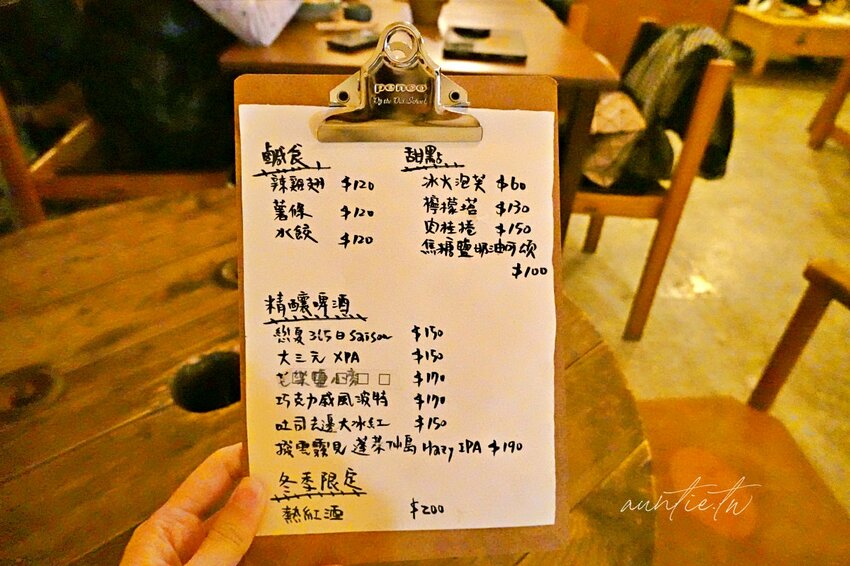 penco
By the Old School
鹹食
辣雞翅 $120
薯條 $120
水餃 $120
甜點
冰火泡芙 $60
檸檬塔 $130
肉桂捲 $150
焦糖鹽奶油可頌
$100
精釀啤酒
戀夏365日 Saison $150
大三元 XPA $150
鹽小 $170
巧克力威風波特 $170
吐司去邊大冰紅 $150
撥雲霧見蓬萊仙島 Hazy IPA $190
冬季限定
熱紅酒 $200
auntie.tw